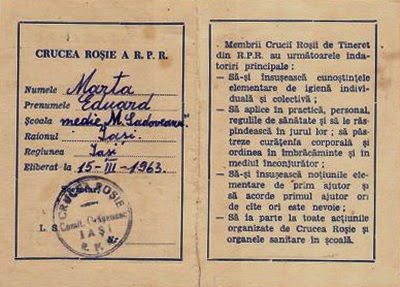 CRUCEA ROȘIE A R. P. R.
Numele Marta
Prenumele Eduard
Școala medie „M. Sadoveanu”
Raionul Iași
Regiunea Iași
Eliberat la 15-III-1963.
Secretar
L. S.
CRUCEA ROȘIE
Comit. Orășenesc
IAȘI
R. P. R.
Membrii Crucii Roșii de Tineret
din R.P.R. au următoarele înda-
toriri principale :
— Să-și însușească cunoștințele
elementare de igienă indivi-
duală și colectivă ;
— Să aplice în practică, personal,
regulile de sănătate și să le răs-
pîndească în jurul lor ; să păs-
treze curățenia corporală și
ordinea în îmbrăcăminte și în
mediul înconjurător ;
— Să-și însușească noțiunile ele-
mentare de prim ajutor și
să acorde primul ajutor ori
de cîte ori este nevoie ;
— Să ia parte la toate acțiunile
organizate de Crucea Roșie și
organele sanitare în școală.